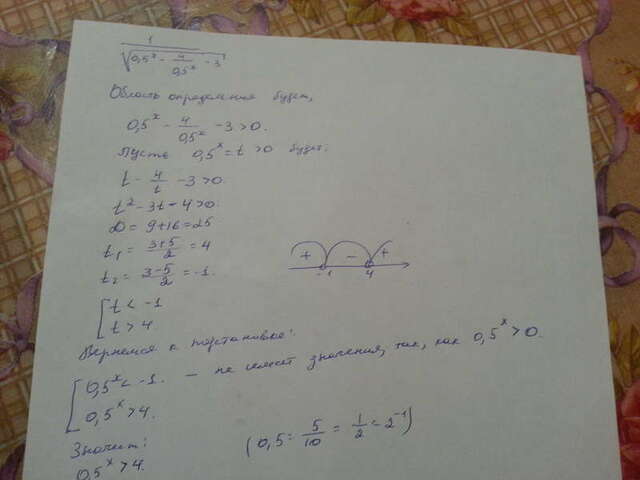 1/√(0,5^x - 4/0,5^x - 3)
Область определения будет,
0,5^x - 4/0,5^x - 3 > 0.
Пусть 0,5^x = t > 0 будет.
t - 4/t - 3 > 0.
t² - 3t - 4 > 0.
D = 9 + 16 = 25
t₁ = (3+5)/2 = 4
t₂ = (3-5)/2 = -1.
+ - +
-1 4
[ t < -1
t > 4
Вернемся к подстановке:
[ 0,5^x < -1. – не имеет значения, так, как 0,5^x > 0.
0,5^x > 4.
Значит: (0,5 = 5/10 = 1/2 = 2^-1)
0,5^x > 4.